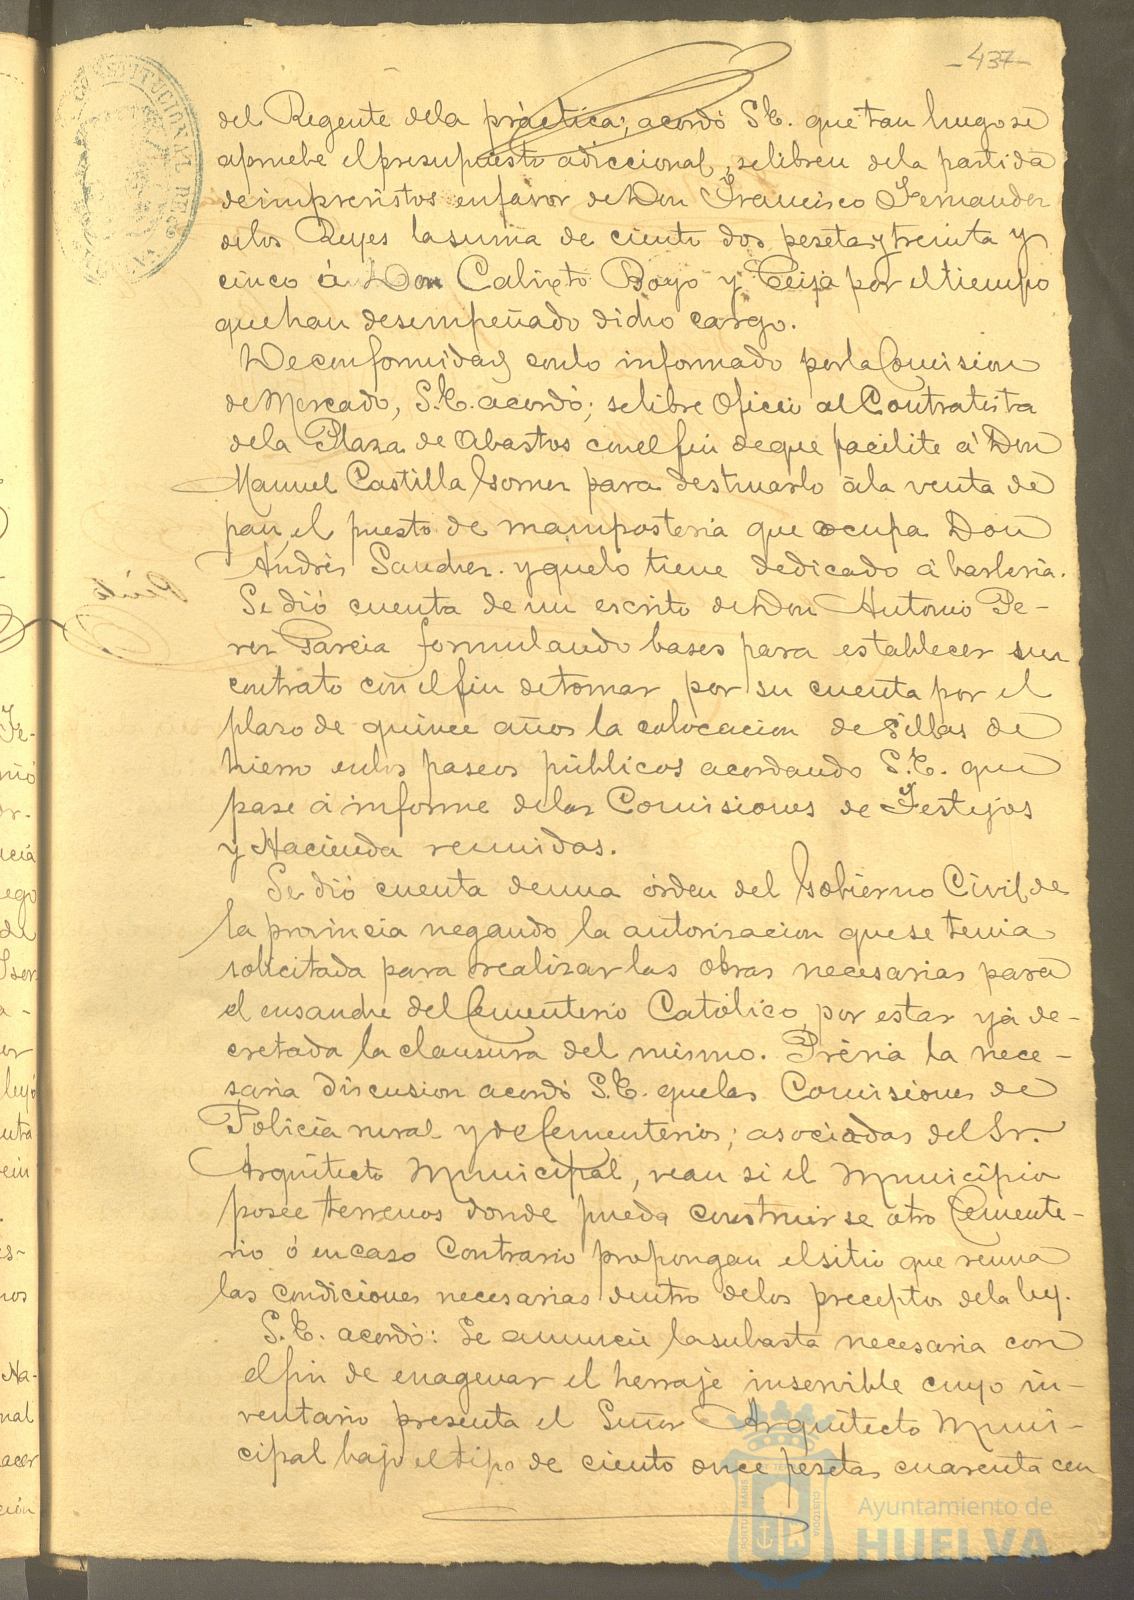 -437-
del Regente dela práctica; acordó S.E. que tan luego se
apruebe el presupuesto adiccional, se libren dela partida
de imprevistos en favor de Don Francisco Fernandez
delos Reyes la suma de ciento dos pesetas y treinta y
cinco á Don Calixto Boyo y por el tiempo
que han desempeñado dicho cargo.
De conformidad con lo informado por la Comision
de Mercado, S.E. acordó; se libre Oficio al Contratista
dela Plaza de Abastos con el fin de que facilite á Don
Manuel Castilla Gomez para destinarlo á la venta de
pan, el puesto de mamposteria que ocupa Don
Andrés Sanchez y que lo tiene dedicado á barberia.
Se dió cuenta de un escrito de Don Antonio Pe-
rez Garcia formulando bases para establecer un
contrato con el fin de tomar por su cuenta por el
plazo de quince años la colocacion de sillas de
hierro en los paseos públicos acordando S.E. que
pase á informe de las Comisiones de Festejos
y Hacienda reunidas.
Se dió cuenta de una órden del Gobierno Civil de
la provincia negando la autorizacion que se tenia
solicitada para realizar las obras necesarias para
el ensanche del Cementerio Católico por estar yá de-
cretada la clausura del mismo. Prévia la nece-
saria discusion acordó S.E. que las Comisiones de
Policía rural y de Cementerios; asociadas del Sr.
Arquitecto Municipal, vean si el Municipio
posee terrenos donde pueda construirse otro Cemente-
rio ó en caso contrario propongan el sitio que reuna
las condiciones necesarias dentro delos preceptos dela ley.
S.E. acordó: Se anuncie la subasta necesaria con
el fin de enagenar el herraje inservible cuyo in-
ventario presenta el Señor Arquitecto Muni-
cipal bajo el tipo de ciento once pesetas cuarenta cen
Ayuntamiento de
HUELVA